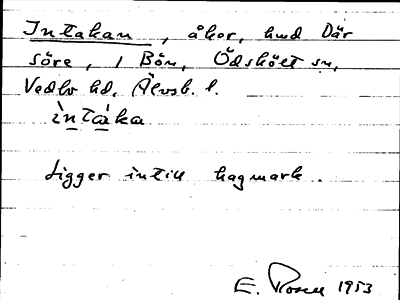 Intakan, åkor, hmd Där
söre, / Bön, Ödskölt sn,
Vedbo hd, Älvsb. l.
ìntàka
Ligger intill hagmark.
E. Rosell 1953